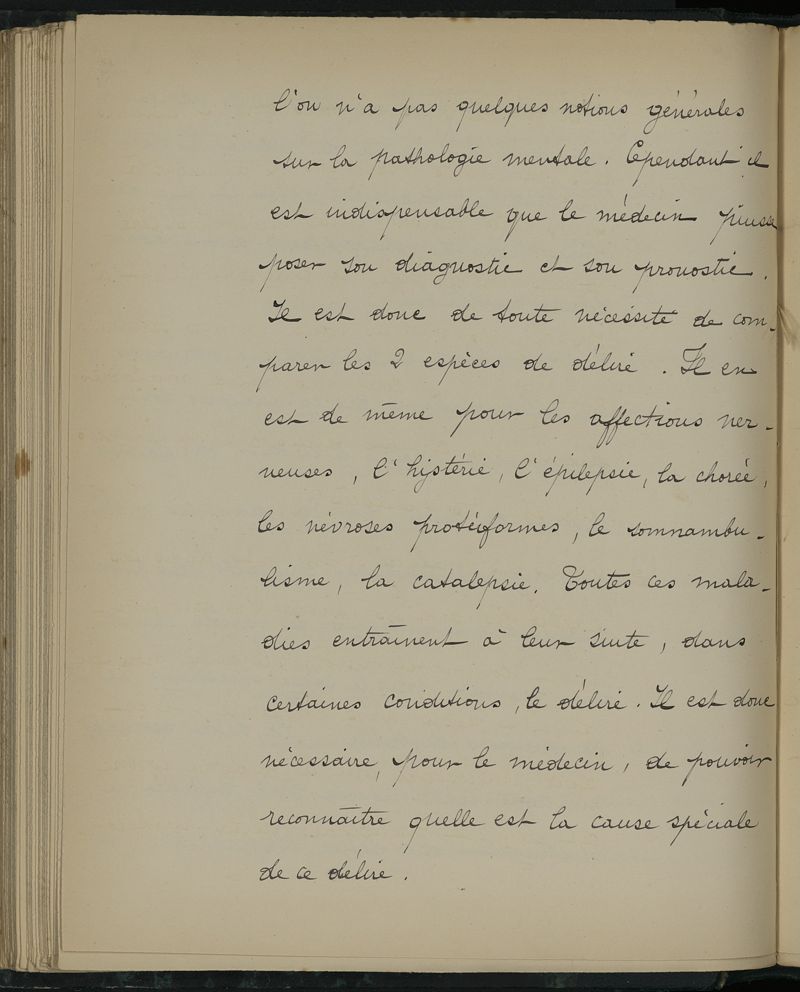 l'on n'a pas quelques notions générales
sur la pathologie mentale. Cependant il
est indispensable que le médecin puisse
poser son diagnostic et son pronostic.
Il est donc de toute nécessité de com-
parer les 2 espèces de délire. Il en
est de même pour les affections ner-
veuses, l'hystérie, l'épilepsie, la chorée,
les névroses protéiformes, le somnambu-
lisme, la catalepsie. Toutes ces mala-
dies entraînent à leur suite, dans
certaines conditions, le délire. Il est donc
nécessaire, pour le médecin, de pouvoir
reconnaître quelle est la cause spéciale
de ce délire.